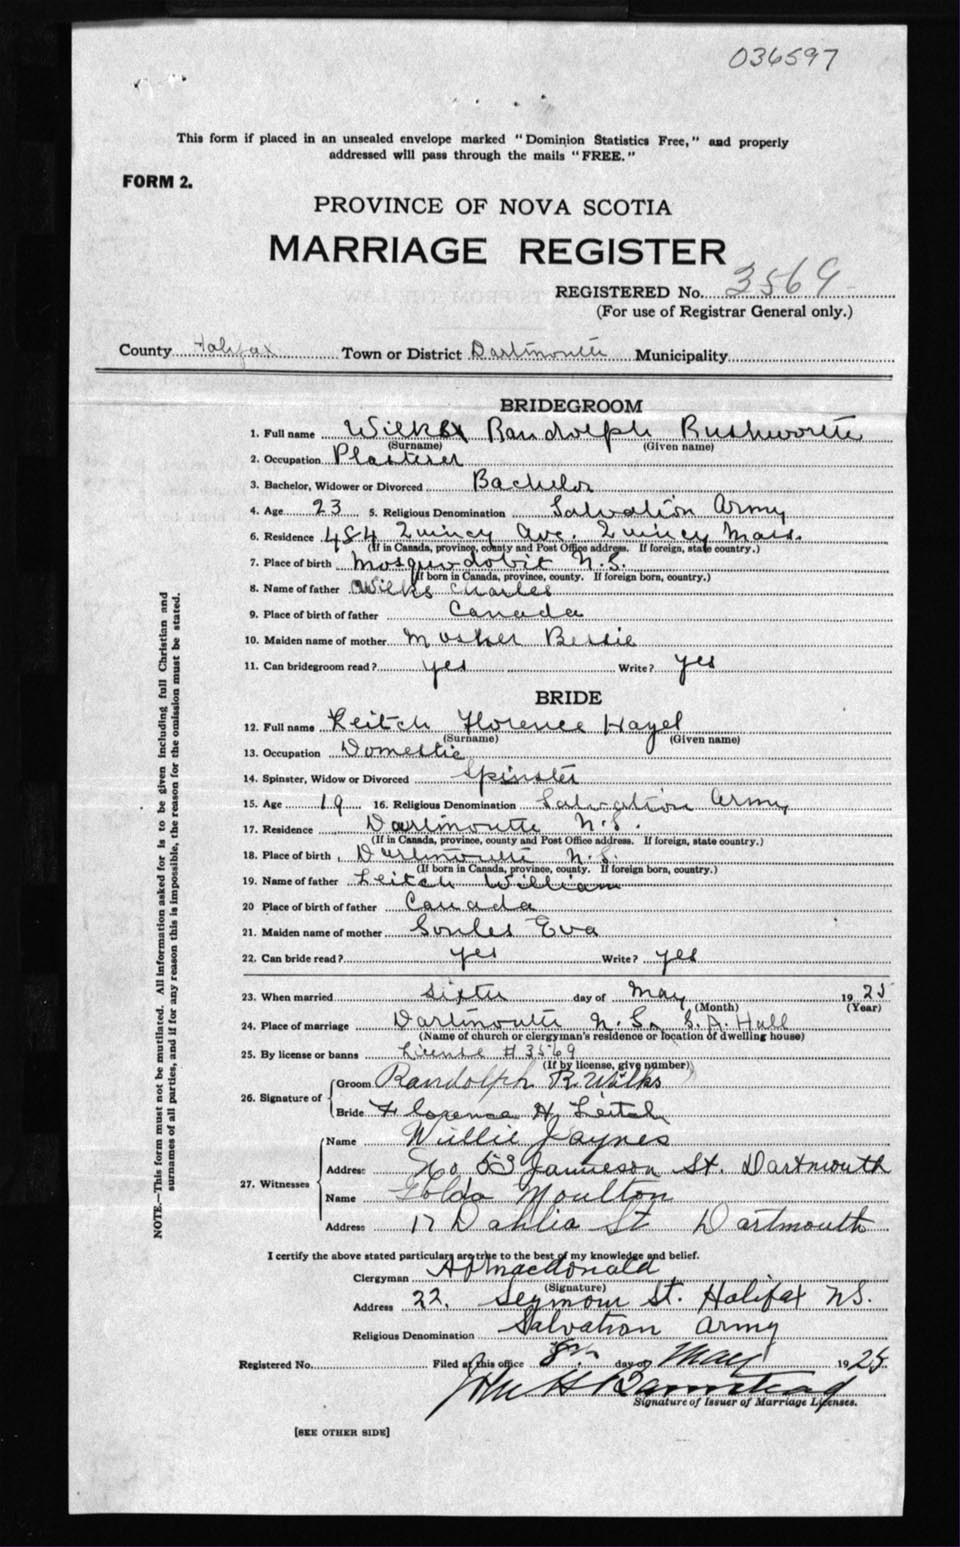 036597
This form if placed in an unsealed envelope marked "Dominion Statistics Free," and properly
addressed will pass through the mails "FREE."
FORM 2.
PROVINCE OF NOVA SCOTIA
MARRIAGE REGISTER
REGISTERED No. 3569
(For use of Registrar General only.)
County Halifax Town or District Dartmouth Municipality
BRIDEGROOM
1. Full name Wilks Randolph Rushworth
(Surname) (Given name)
2. Occupation Plasterer
3. Bachelor, Widower or Divorced Bachelor
4. Age 23 5. Religious Denomination Salvation Army
6. Residence 484 Quincy Ave. Quincy Mass.
(If in Canada, province, county and Post Office address. If foreign, state country.)
7. Place of birth Mosquodobit N.S.
(If born in Canada, province, county. If foreign born, country.)
8. Name of father Wilks Charles
9. Place of birth of father Canada
10. Maiden name of mother Mosher Bessie
11. Can bridegroom read? yes Write? yes
BRIDE
12. Full name Leitch Florence Hazel
(Surname) (Given name)
13. Occupation Domestic
14. Spinster, Widow or Divorced Spinster
15. Age 19 16. Religious Denomination Salvation Army
17. Residence Dartmouth N.S.
(If in Canada, province, county and Post Office address. If foreign, state country.)
18. Place of birth Dartmouth N.S.
(If born in Canada, province, county. If foreign born, country.)
19. Name of father Leitch William
20 Place of birth of father Canada
21. Maiden name of mother Soules Eva
22. Can bride read? yes Write? yes
23. When married sixth day of May 1925
(Month) (Year)
24. Place of marriage Dartmouth N.S. S.A. Hall
(Name of church or clergyman's residence or location of dwelling house)
25. By license or banns License #3569
(If by license, give number)
26. Signature of Groom Randolph R. Wilks
Bride Florence H. Leitch
27. Witnesses Name Willie Jaynes
Address No 53 Jamieson St. Dartmouth
Name Moulton
Address 17 Dahlia St Dartmouth
I certify the above stated particulars are true to the best of my knowledge and belief.
Clergyman MacDonald
(Signature)
Address 22. Seymour St. Halifax N.S.
Religious Denomination Salvation Army
Registered No. Filed at this office 8th day of May 1925
John H Bamstead
Signature of Issuer of Marriage Licenses.
[SEE OTHER SIDE]
NOTE.—This form must not be mutilated. All information asked for is to be given including full Christian and
surnames of all parties, and if for any reason this is impossible, the reason for the omission must be stated.